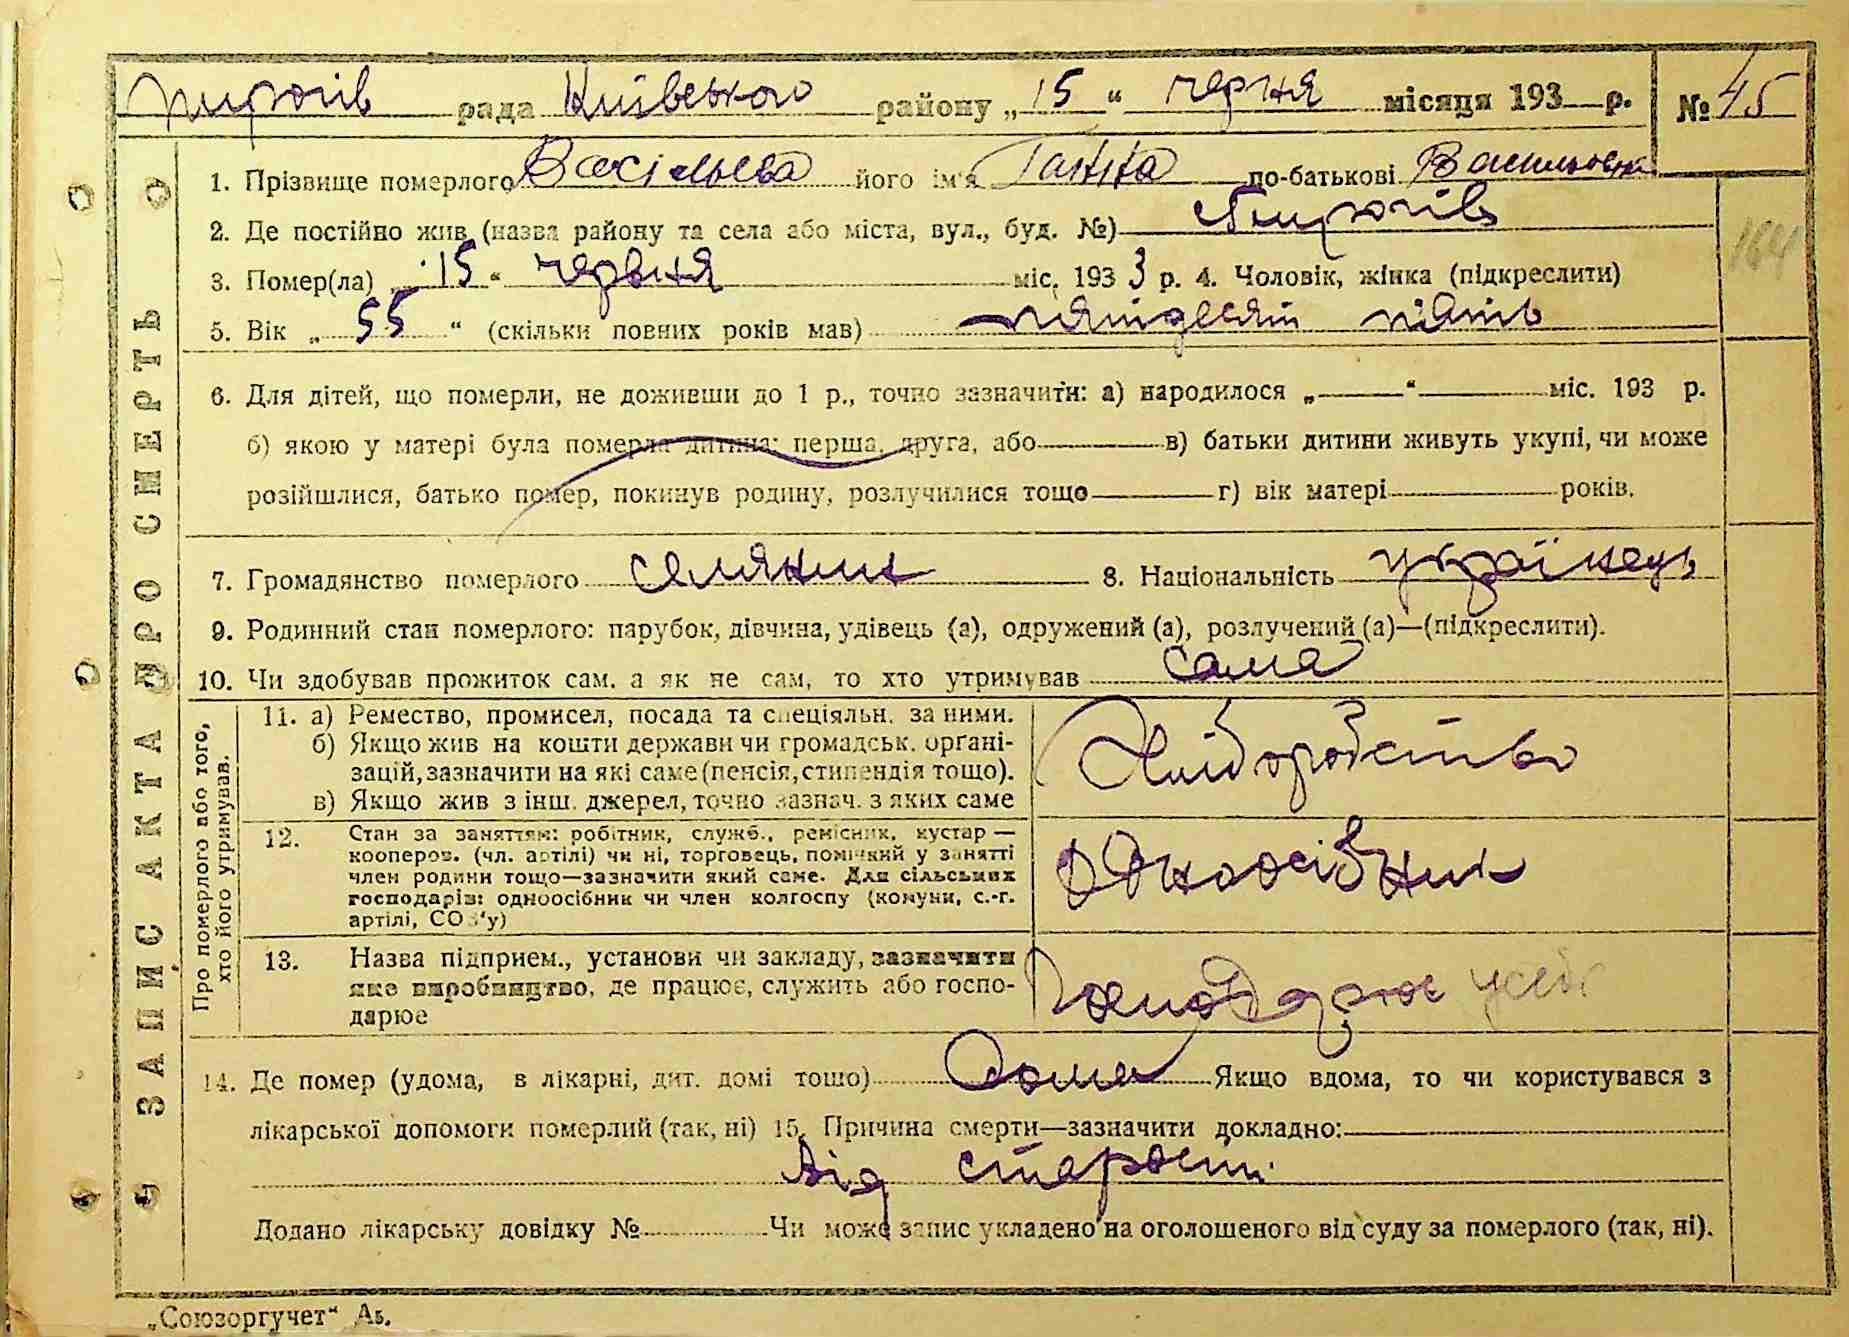 Пирогів рада Київського району „15“ черня місяця 193 р. № 45
1. Прізвище померлого Васільєва його ім'я Ганна по-батькові Васильовна
2. Де постійно жив (назва району та села або міста, вул., буд. №) Пирогів
3. Помер(ла) „15“ червня міс. 1933 р. 4. Чоловік, жінка (підкреслити)
5. Вік „55“ (скільки повних років мав) пятідесят пять
6. Для дітей, що померли, не доживши до 1 р., точно зазначити: а) народилося „ “ міс. 193 р.
б) якою у матері була померла дитина: перша, друга, або в) батьки дитини живуть укупі, чи може
розійшлися, батько помер, покинув родину, розлучилися тощо г) вік матері років.
7. Громадянство померлого селянин 8. Національність українець
9. Родинний стан померлого: парубок, дівчина, удівець (а), одружений (а), розлучений (а)—(підкреслити).
10. Чи здобував прожиток сам, а як не сам, то хто утримував сама
ЗАПИС АКТА ПРО СМЕРТЬ
Про померлого або того,
хто його утримував.
11. а) Ремество, промисел, посада та спеціяльн. за ними.
б) Якщо жив на кошти держави чи громадськ. організацій, зазначити на які саме (пенсія, стипендія тощо).
в) Якщо жив з інш. джерел, точно зазнач. з яких саме
Хліборобство
12. Стан за заняттям: робітник, служб., ремісник, кустар —
кооперов. (чл. артілі) чи ні, торговець, помічний у занятті
член родини тощо—зазначити який саме. Для сільських
господарів: одноосібник чи член колгоспу (комуни, с.-г.
артілі, СОЗ'у)
одноосібник
13. Назва підприєм., установи чи закладу, зазначити
яке виробництво, де працює, служить або господарює
господарює
14. Де помер (удома, в лікарні, дит. домі тощо) дома Якщо вдома, то чи користувався з
лікарської допомоги померлий (так, ні) 15. Причина смерти—зазначити докладно:
від старости
Додано лікарську довідку № Чи може запис укладено на оголошеного від суду за померлого (так, ні).
164
„Союзоргучет“ Аз.